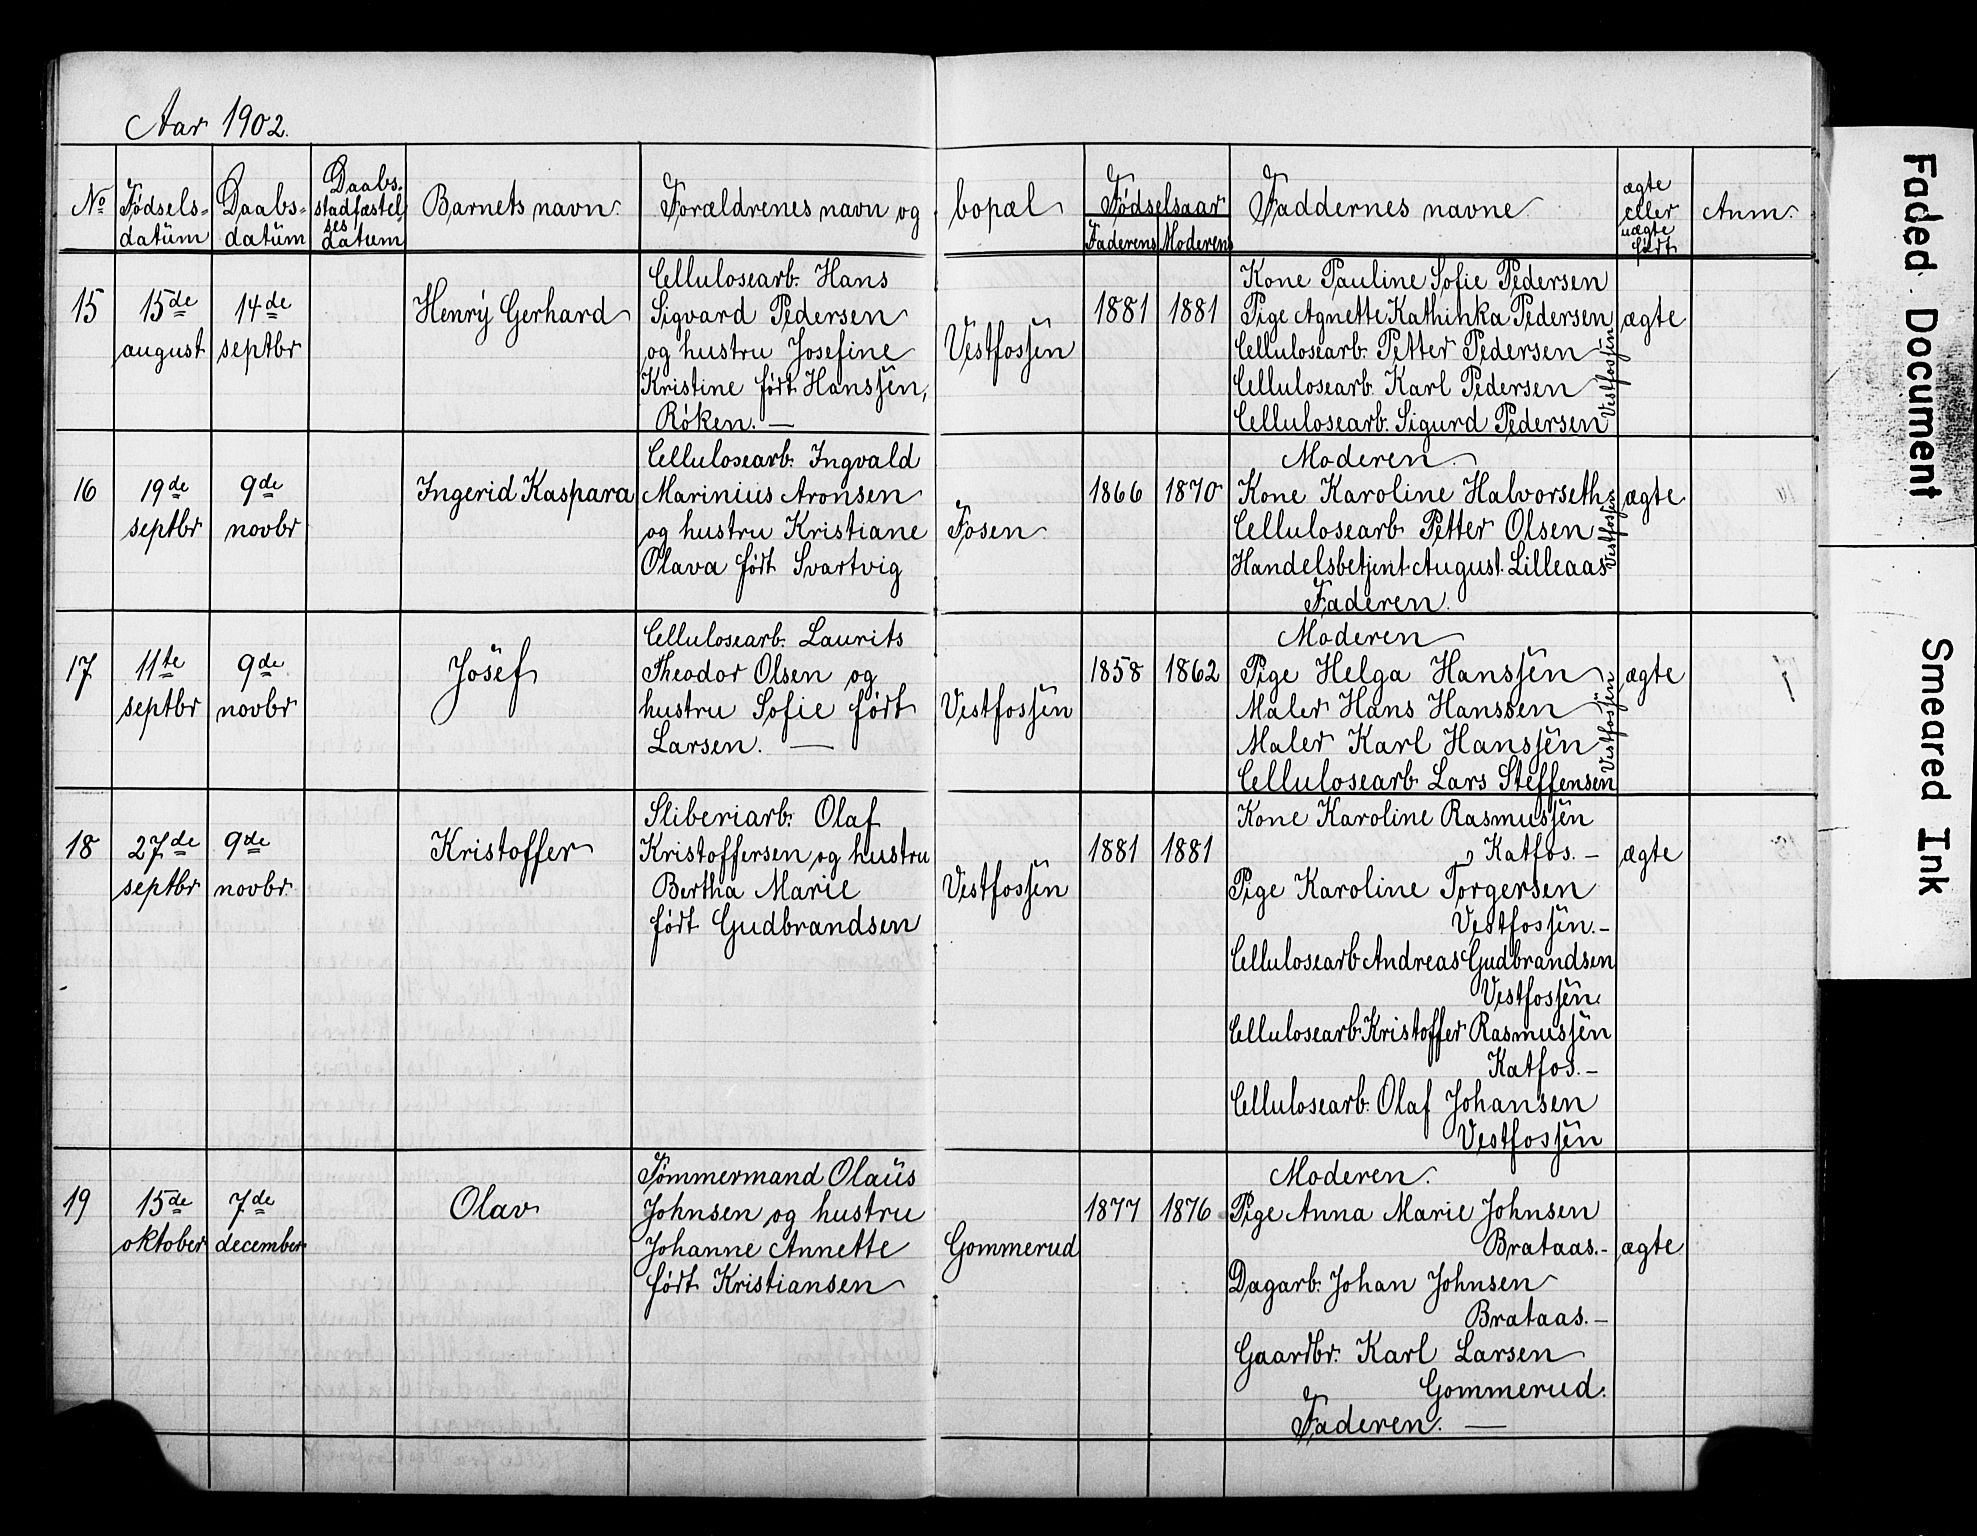 Aar 1902.
No
Fødsels-
datum
Daabs-
datum
Daabs.
stadfæstel
ses
datum
Barnets navn.
Forældrenes navn og
bopæl
Fødselsaar
Faderens
Moderens
Faddernes navne.
ægte
eller
uægte
født
Anm.
15
15de
august
14de
septbr
Henry Gerhard
Cellulosearb. Hans
Sigvard Pedersen
og hustru Josefine
Kristine født Hanssen,
Røken. —
Vestfossen
1881
1881
Kone Pauline Sofie Pedersen
Pige Agnette Kathinka Pedersen
Cellulosearb. Petter Pedersen
Cellulosearb. Karl Pedersen
Cellulosearb. Sigurd Pedersen
Vestfossen
ægte
16
19de
septbr
9de
novbr
Ingerid Kaspara
Cellulosearb. Ingvald
Marinius Aronsen
og hustru Kristiane
Olava født Svartvig
Fosen
1866
1870
Moderen.
Kone Karoline Halvorseth
Cellulosearb Petter Olsen
Handelsbetjent August Lilleaas
Faderen.
Vestfossen
ægte
17
11te
septbr
9de
novbr
Josef
Cellulosearb. Laurits
Theodor Olsen og
hustru Sofie født
Larsen. —
Vestfossen
1858
1862
Moderen
Pige Helga Hanssen
Maler Hans Hanssen
Maler Karl Hanssen
Cellulosearb Lars Steffensen
Vestfossen
ægte
18
27de
septbr
9de
novbr.
Kristoffer
Sliberiarb. Olaf
Kristoffersen og hustru
Bertha Marie
født Gudbrandsen
Vestfossen
1881
1881
Kone Karoline Rasmussen
Katfos. —
Pige Karoline Torgersen
Vestfossen. —
Cellulosearb Andreas Gudbrandsen
Vestfossen.
Cellulosearb Kristoffer Rasmussen
Katfos. —
Cellulosearb. Olaf Johansen
Vestfossen
ægte
19
15de
oktober
7de
december
Olav
Tømmermand Olaus
Johnsen og hustru
Johanne Annette
født Kristiansen
Gommerud
1877
1876
Moderen.
Pige Anna Marie Johnsen
Brataas. —
Dagarb. Johan Johnsen
Brataas. —
Gaardbr. Karl Larsen
Gommerud.
Faderen. —
ægte
Faded Document
Smeared Ink